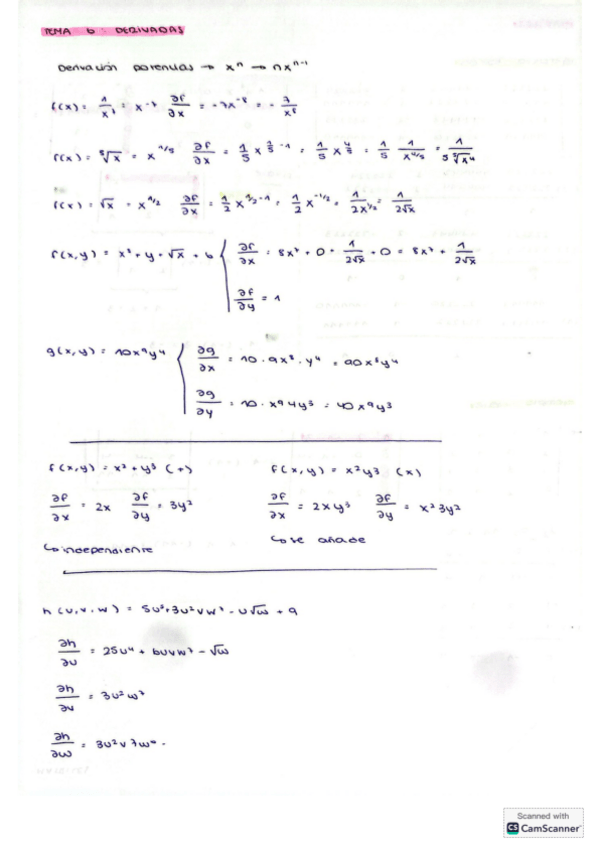 TEMA 6: DERIVADAS
Derivación potencias → xⁿ → nxⁿ⁻¹
f(x) = 1/x⁷ = x⁻⁷ ∂f/∂x = -7x⁻⁸ = -7/x⁸
f(x) = ⁵√x = x^1/5 ∂f/∂x = 1/5 x = 1/5 x = 1/5 1/x^4/5 = 1/5 ⁵√x⁴
f(x) = √x = x^1/2 ∂f/∂x = 1/2 x^1/2-1 = 1/2 x^-1/2 = 1/2x^1/2 = 1/2√x
f(x,y) = x⁸ + y + √x + 6 { ∂f/∂x = 8x⁷ + 0 + 1/2√x + 0 = 8x⁷ + 1/2√x
∂f/∂y = 1
g(x,y) = 10x⁹y⁴ { ∂g/∂x = 10 · 9x⁸ · y⁴ = 90x⁸y⁴
∂g/∂y = 10 · x⁹4y³ = 40x⁹y³
f(x,y) = x² + y³ (+) f(x,y) = x²y³ (x)
∂f/∂x = 2x ∂f/∂y = 3y² ∂f/∂x = 2xy³ ∂f/∂y = x²3y²
↳ independiente ↳ se añade
h(u,v,w) = 5u⁵+3u²vw⁷ - u√w + 9
∂h/∂u = 25u⁴ + 6uvw⁷ - √w
∂h/∂v = 3u²w⁷
∂h/∂w = 3u²v7w
Scanned with
CS CamScanner